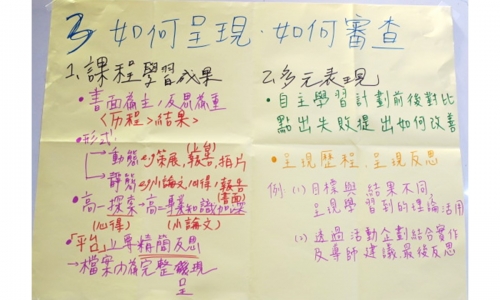 3 如何呈現.如何審查
1.課程學習成果
•書面為主,反思為重
<歷程>結果>
•形式:
動態 策展,報告,拍片
(上台)
靜態 小論文,心得,報告
(書面)
•高一探索→高二專業知識加深
(心得) (小論文)
•「平台」上準精簡反思
→檔案內為完整呈現
2.多元表現
•自主學習計劃前後對比
點出失敗提出如何改善
•呈現歷程,呈現反思
例(1)目標與結果不同,
呈現學習到的理論活用
(2)透過活動企劃結合實作
及導師建議,最後反思